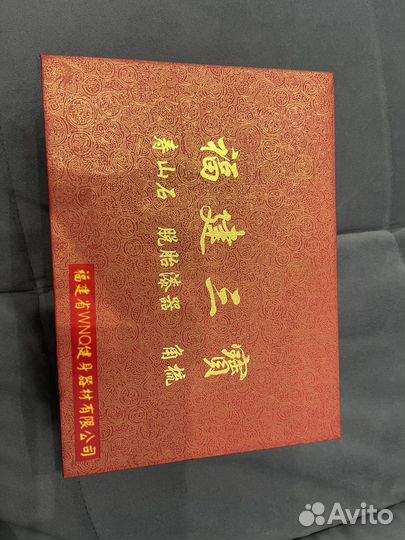 福建三寳
寿山石 脱胎漆器 角梳
福建省WNQ健身器材有限公司
Avito